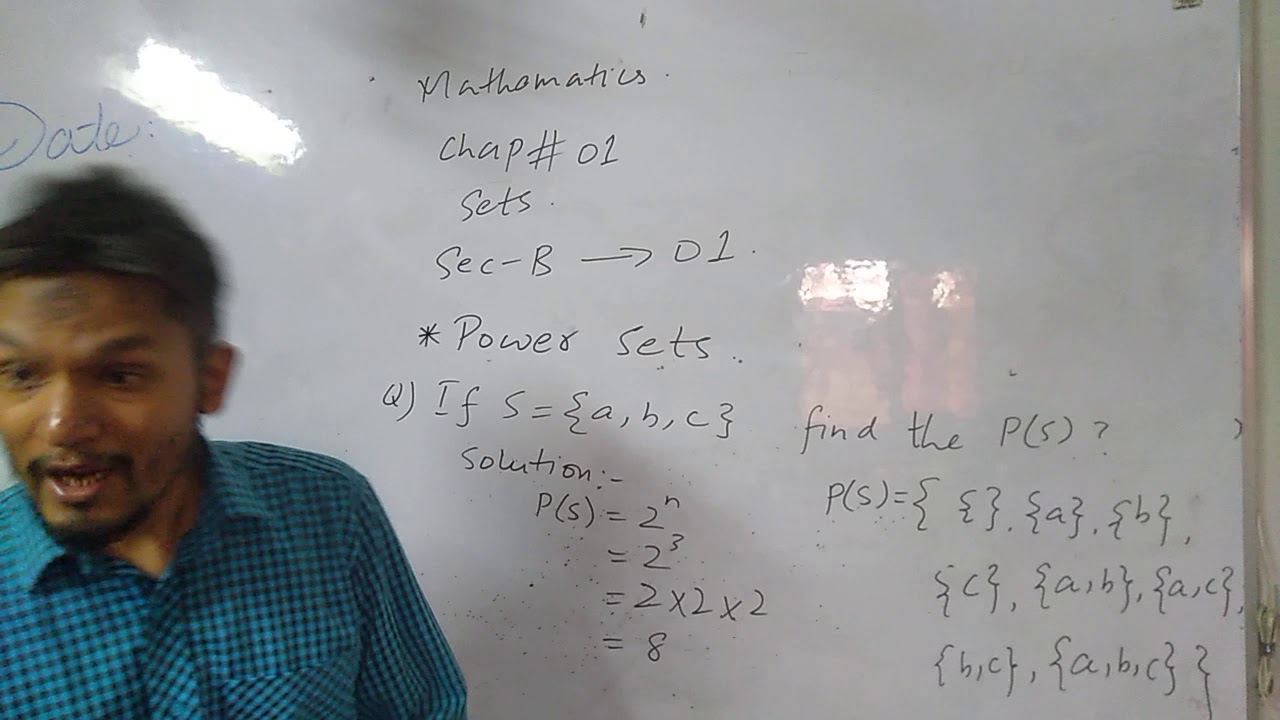 Date:
Mathematics.
Chap# 01
Sets.
Sec-B → 01.
* Power Sets.
Q) If S={a,b,c} find the P(S)?
Solution:-
P(S) = 2ⁿ
= 2³
= 2×2×2
= 8
P(S)={ {}, {a}, {b},
{c}, {a,b}, {a,c},
{b,c}, {a,b,c} }